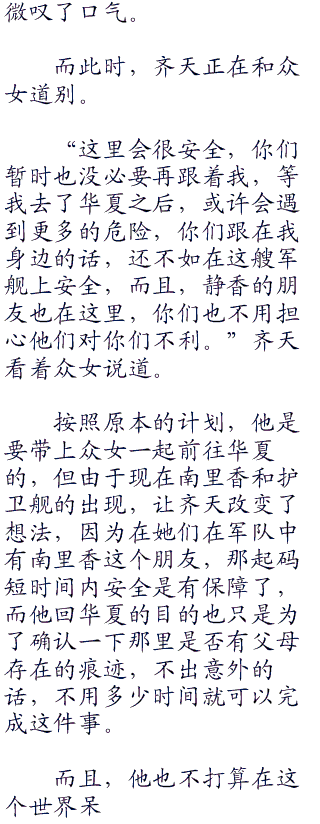 微叹了口气。
而此时，齐天正在和众
女道别。
“这里会很安全，你们
暂时也没必要再跟着我，等
我去了华夏之后，或许会遇
到更多的危险，你们跟在我
身边的话，还不如在这艘军
舰上安全，而且，静香的朋
友也在这里，你们也不用担
心他们对你们不利。”齐天
看着众女说道。
按照原本的计划，他是
要带上众女一起前往华夏
的，但由于现在南里香和护
卫舰的出现，让齐天改变了
想法，因为在她们在军队中
有南里香这个朋友，那起码
短时间内安全是有保障了，
而他回华夏的目的也只是为
了确认一下那里是否有父母
存在的痕迹，不出意外的
话，不用多少时间就可以完
成这件事。
而且，他也不打算在这
个世界呆